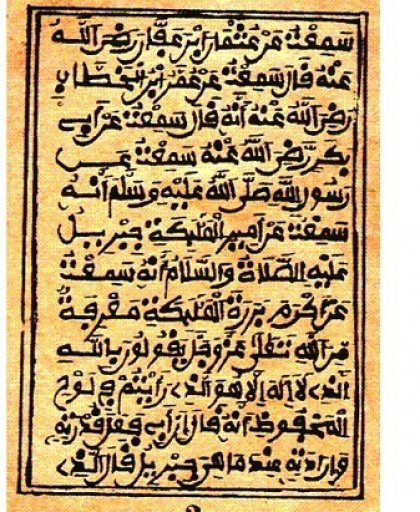 سمعت عن عثمان ابن عفان رضي الله
عنه قال سمعت عن عمر ابن الخطاب
رضي الله عنه أنه قال سمعت عن أبي
بكر رضي الله عنه سمعت عن
رسول الله صلى الله عليه وسلم أنه
سمعت عن أمير الملئكة جبريل
عليه الصلاة والسلام أنه سمعت
عن أكرم بررة الملئكة مقربة
من الله تعلى عز وجل يقولو بالله
الذي لا إله إلا هو الذي رأيتم في لوح
المحفوظ أنه قال
وإرادته عند ما هي جبريل قال الذي